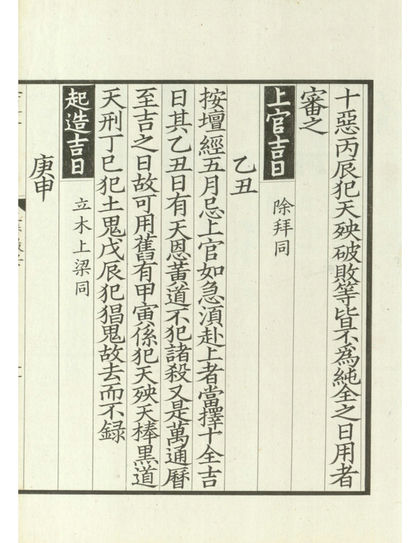 十惡丙辰犯天殃破敗等皆不為純全之日用者
審之
上官吉日 除拜同
乙丑
按壇經五月忌上官如急湏赴上者當擇十全吉
日其乙丑日有天恩黃道不犯諸殺又是萬通曆
至吉之日故可用舊有甲寅係犯天殃天棒黑道
天刑丁巳犯土鬼戊辰犯猖鬼故去而不錄
起造吉日 立木上梁同
庚申